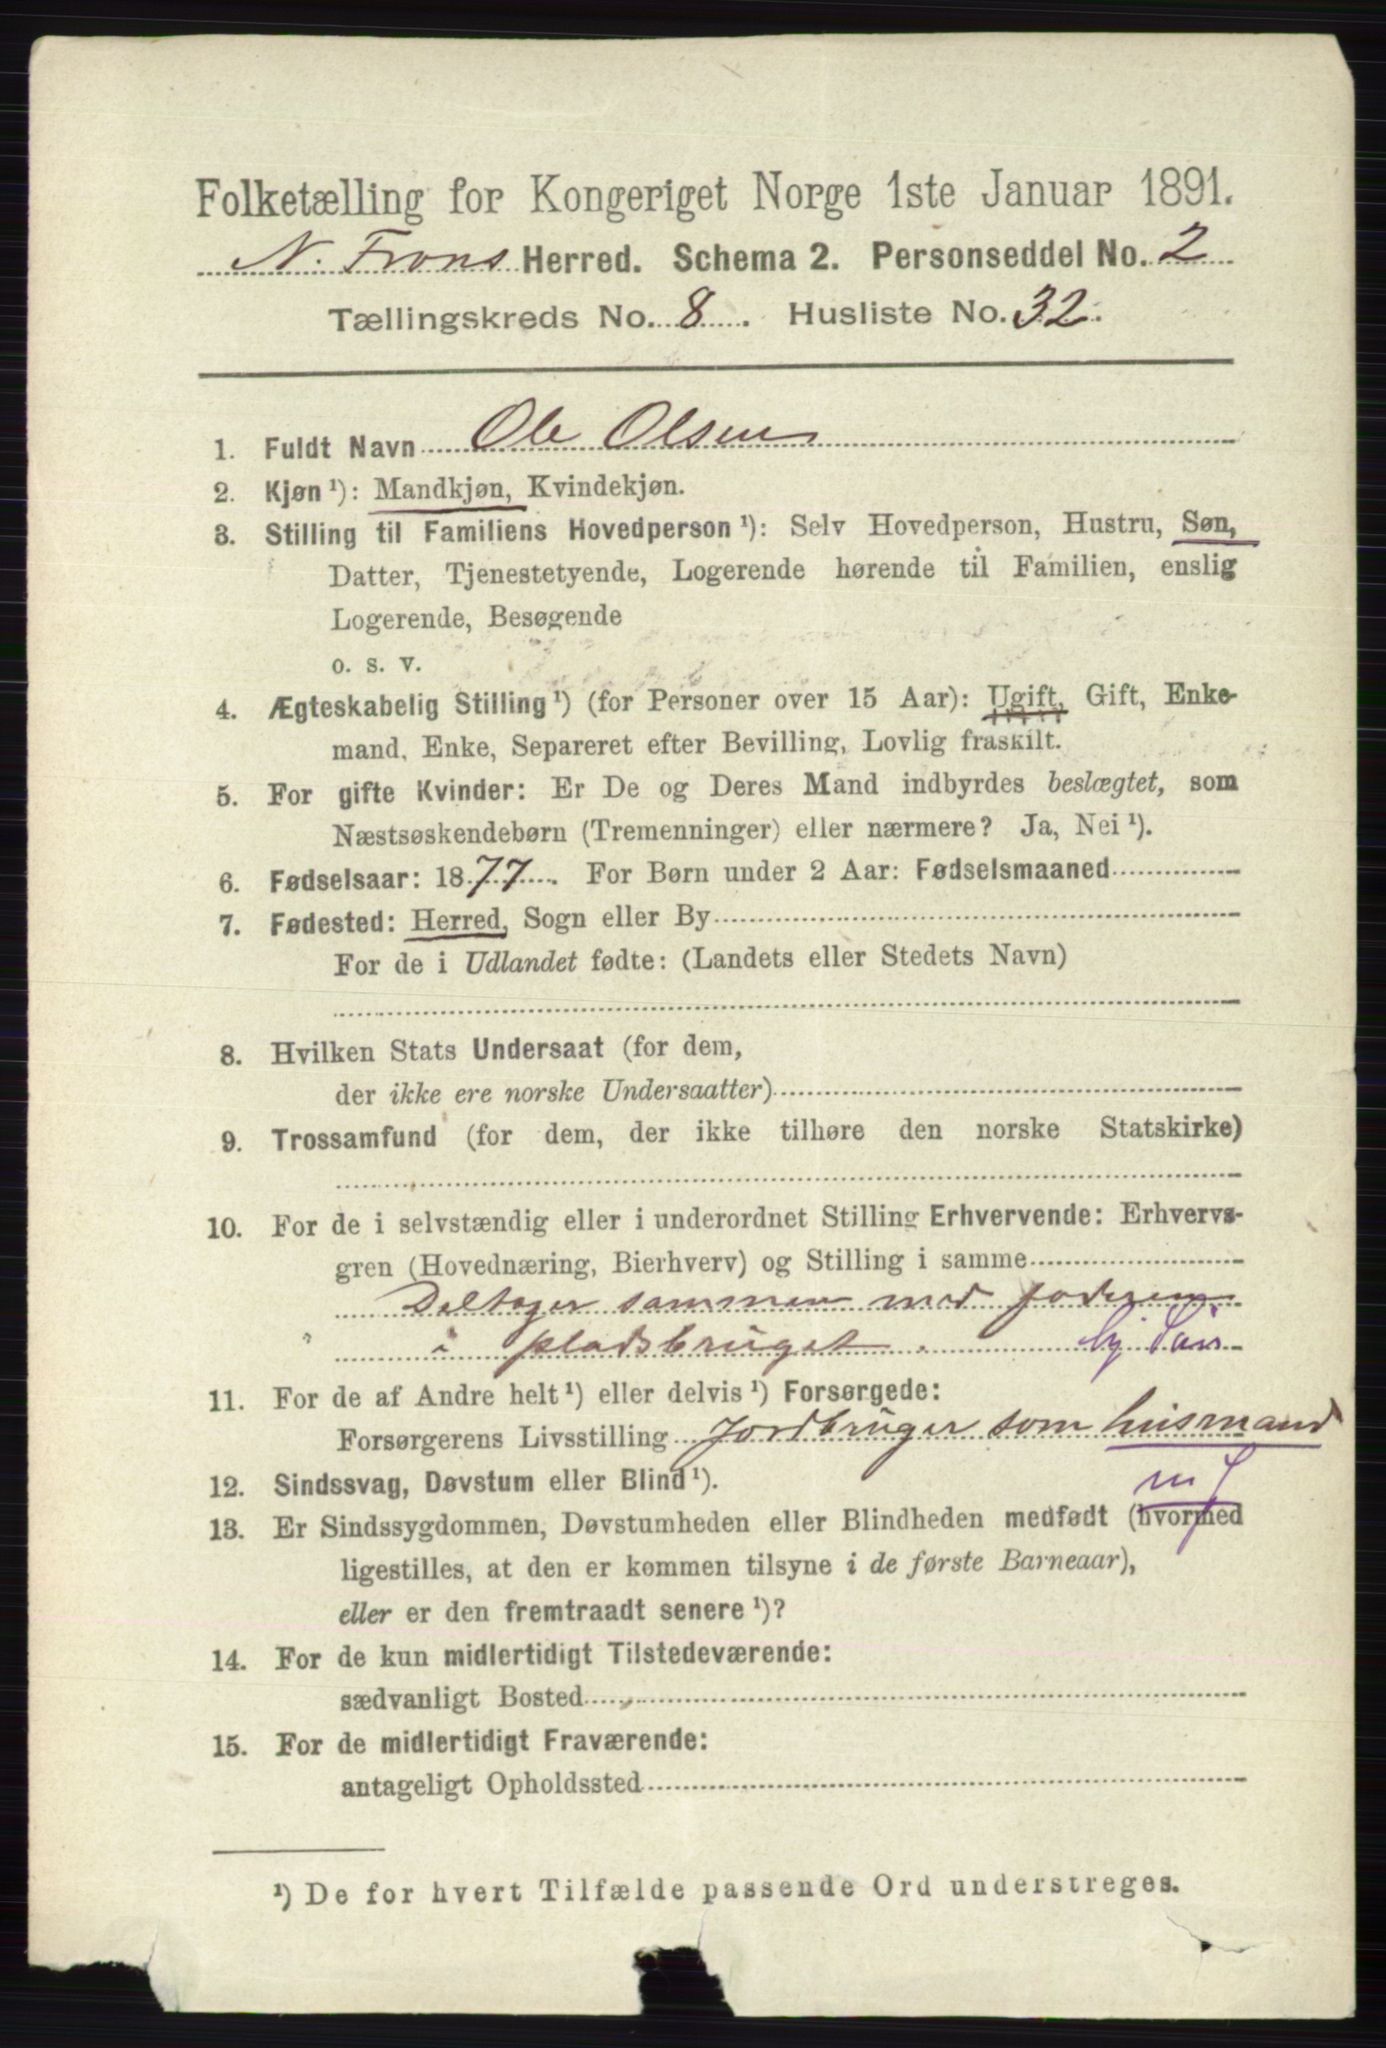 Folketælling for Kongeriget Norge 1ste Januar 1891.
N. Frons Herred. Schema 2. Personseddel No. 2
Tællingskreds No. 8. Husliste No. 32.
1. Fuldt Navn Ole Olsen
2. Kjøn ¹): Mandkjøn, Kvindekjøn.
3. Stilling til Familiens Hovedperson ¹): Selv Hovedperson, Hustru, Søn,
Datter, Tjenestetyende, Logerende hørende til Familien, enslig
Logerende, Besøgende
o. s. v.
4. Ægteskabelig Stilling ¹) (for Personer over 15 Aar): Ugift, Gift, Enke-
mand, Enke, Separeret efter Bevilling, Lovlig fraskilt.
5. For gifte Kvinder: Er De og Deres Mand indbyrdes beslægtet, som
Næstsøskendebørn (Tremenninger) eller nærmere? Ja, Nei ¹).
6. Fødselsaar: 1877. For Børn under 2 Aar: Fødselsmaaned
7. Fødested: Herred, Sogn eller By
For de i Udlandet fødte: (Landets eller Stedets Navn)
8. Hvilken Stats Undersaat (for dem,
der ikke ere norske Undersaatter)
9. Trossamfund (for dem, der ikke tilhøre den norske Statskirke)
10. For de i selvstændig eller i underordnet Stilling Erhvervende: Erhvervs-
gren (Hovednæring, Bierhverv) og Stilling i samme
Deltager sammen med
i pladsbruget.
11. For de af Andre helt ¹) eller delvis ¹) Forsørgede:
Forsørgerens Livsstilling Jordbruger som husmand
m J
12. Sindssvag, Døvstum eller Blind ¹).
13. Er Sindssygdommen, Døvstumheden eller Blindheden medfødt (hvormed
ligestilles, at den er kommen tilsyne i de første Barneaar),
eller er den fremtraadt senere ¹)?
14. For de kun midlertidigt Tilstedeværende:
sædvanligt Bosted
15. For de midlertidigt Fraværende:
antageligt Opholdssted
¹) De for hvert Tilfælde passende Ord understreges.